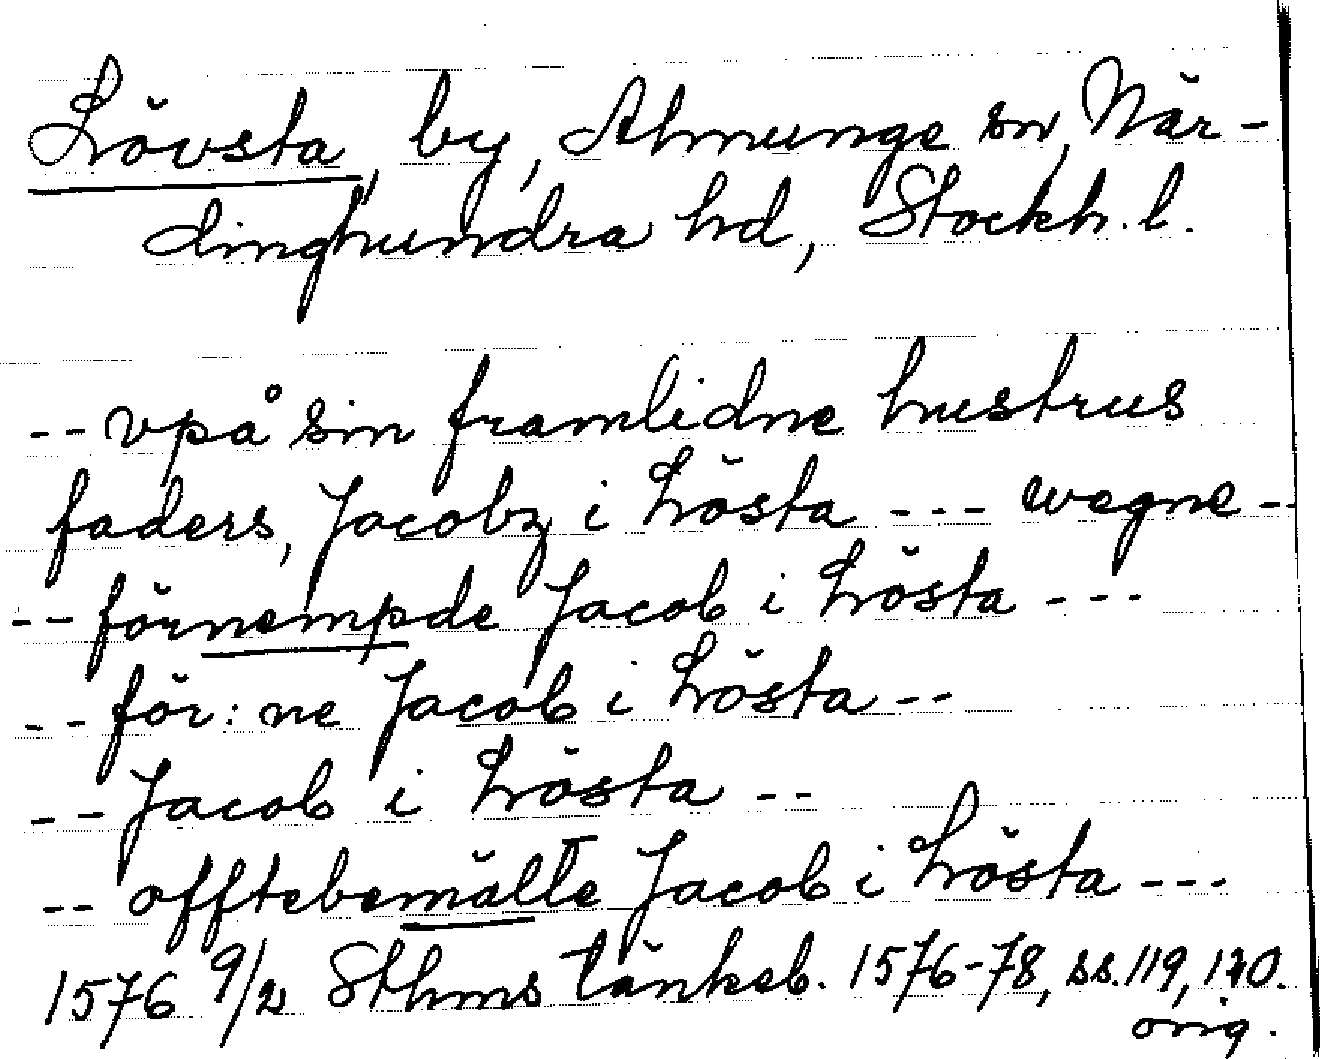 Lövsta, by, Almunge sn, När-
dinghundra hd, Stockh. l.
-- vpå sin framlidne hustrus
faders, Jacobz i Lösta --- wegne --
-- förnempde Jacob i Lösta ---
-- för: ne Jacob i Lösta --
-- Jacob i Lösta --
-- offtebemälte Jacob i Lösta ---
1576 9/2 Sthms tänkeb. 1576-78, ss. 119, 120.
orig.